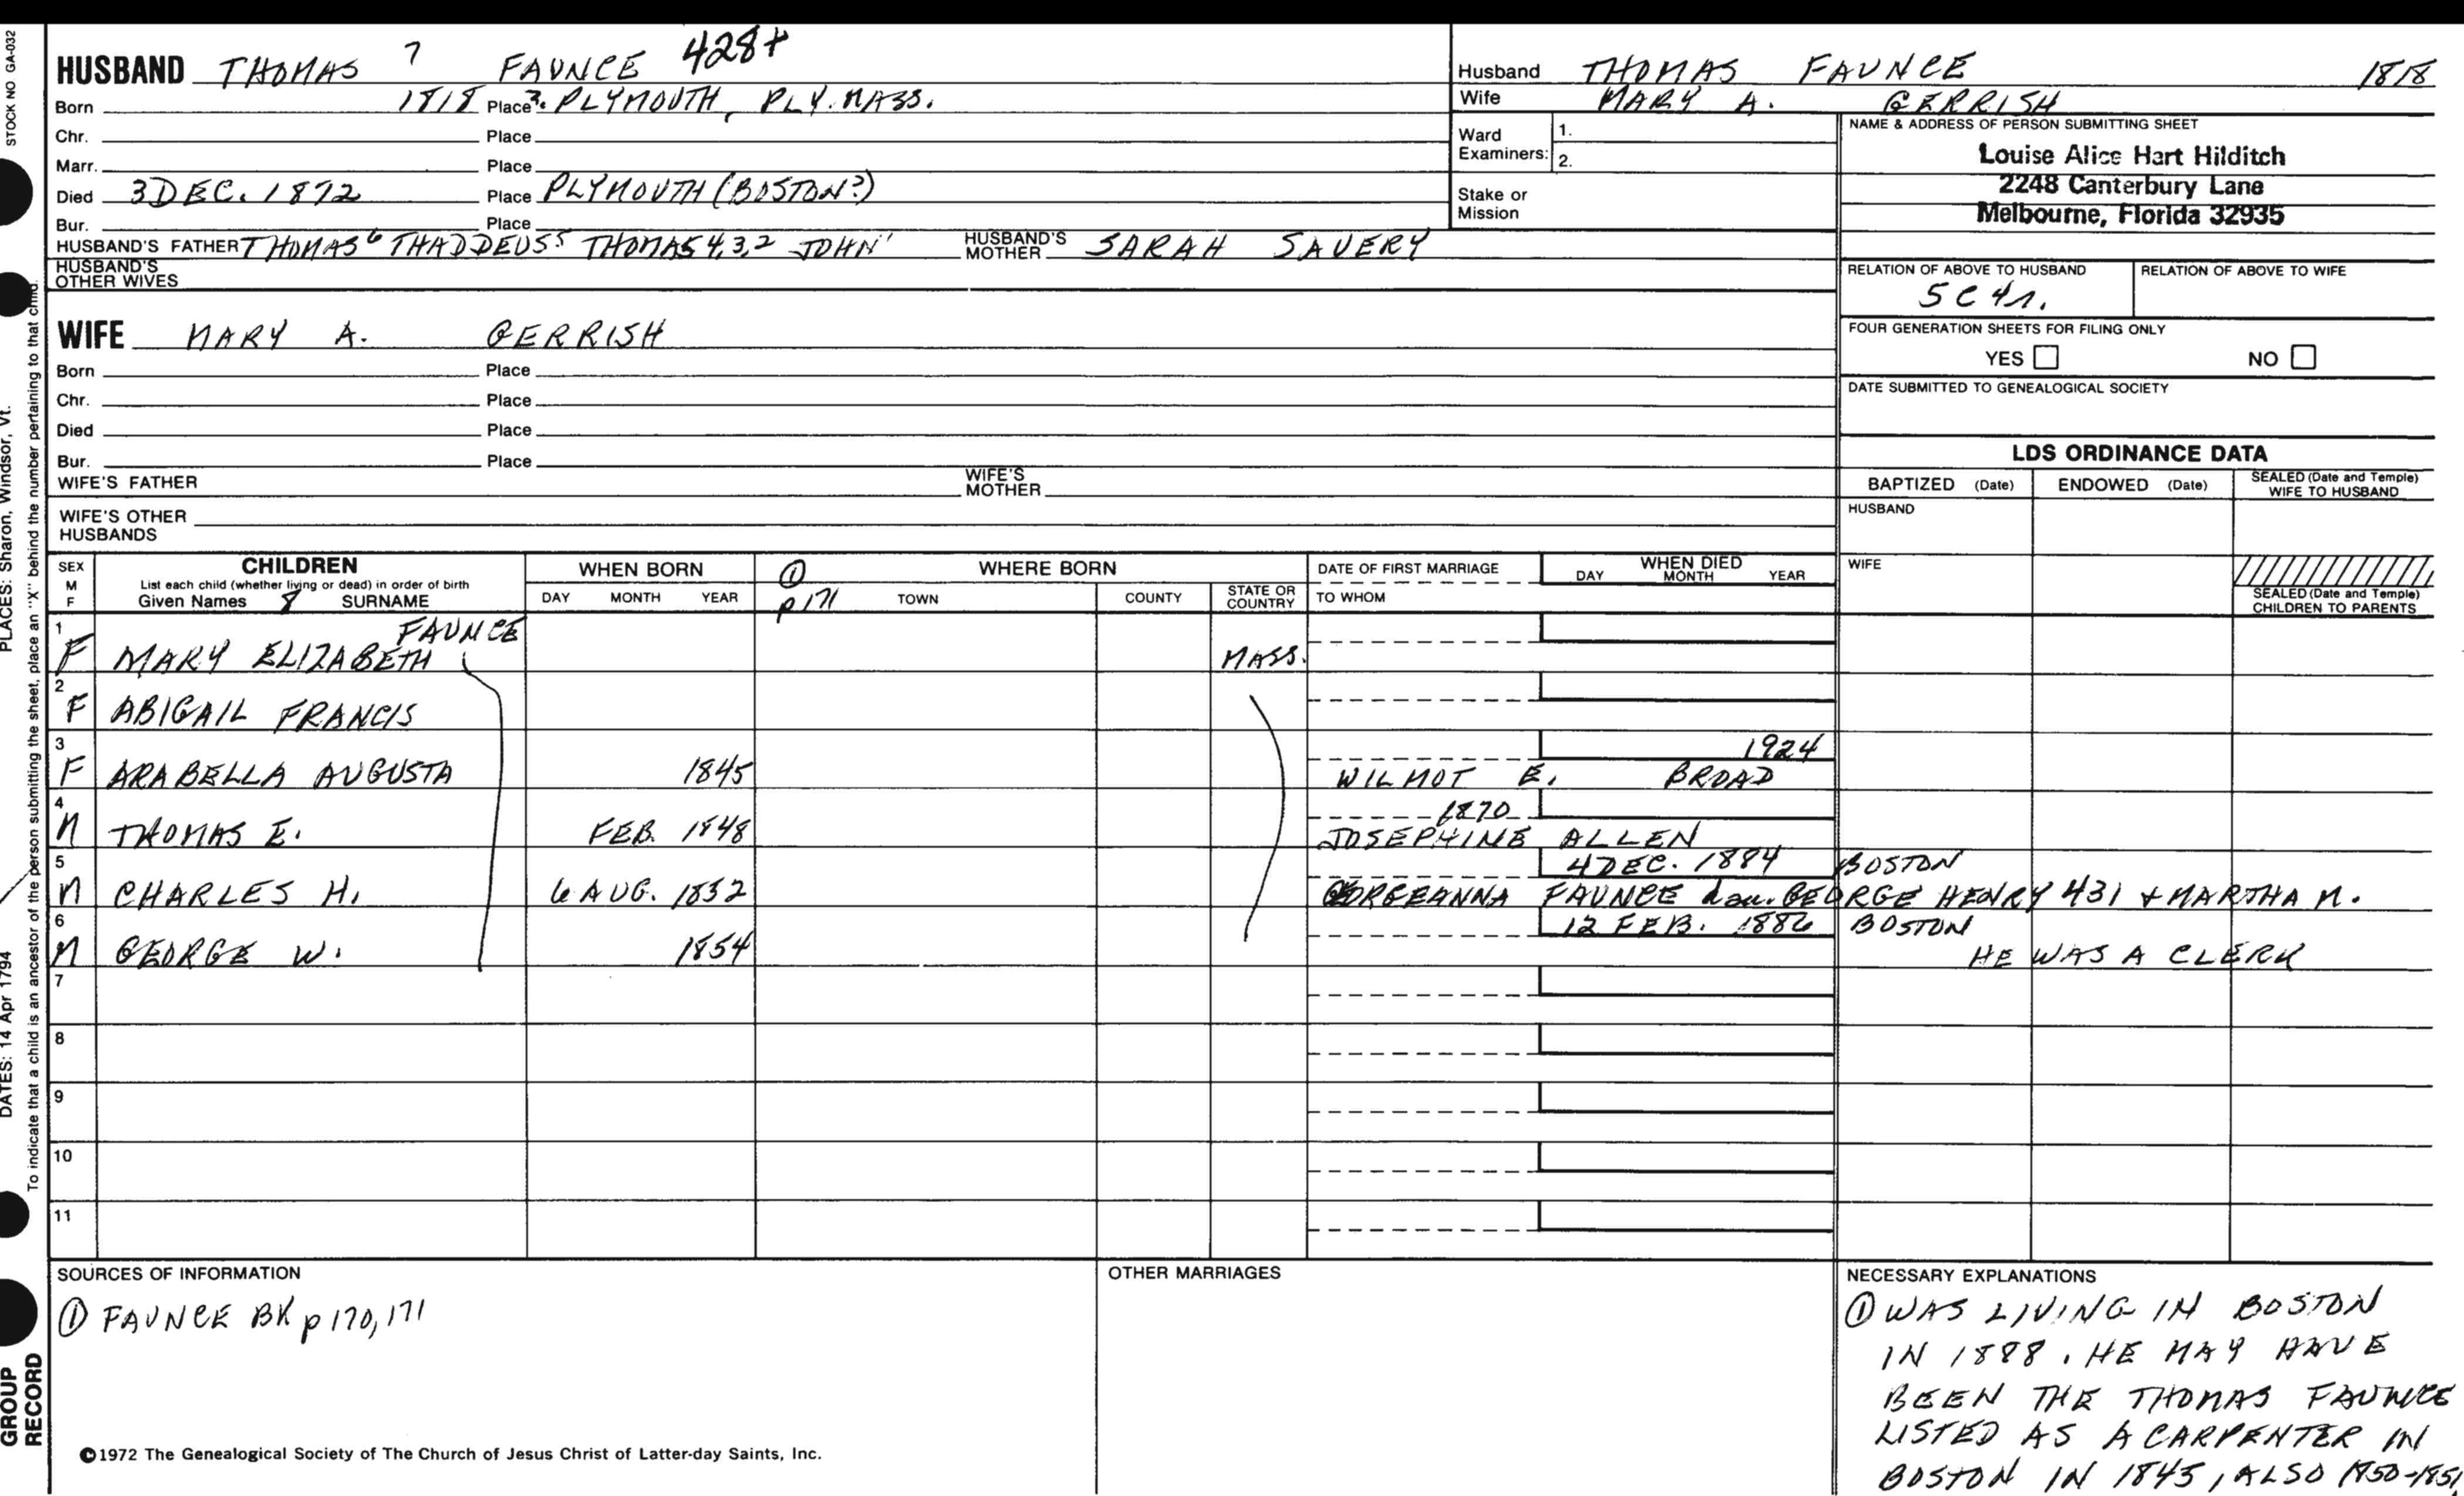 HUSBAND THOMAS 7 FAUNCE 428+
Born 1818 Place ?. PLYMOUTH, PLY. MASS.
Chr. Place
Marr. Place
Died 3 DEC. 1872 Place PLYMOUTH (BOSTON?)
Bur. Place
HUSBAND'S FATHER THOMAS 6 THADDEUS 5 THOMAS 4, 3, 2 JOHN 1 HUSBAND'S MOTHER SARAH SAVERY
HUSBAND'S OTHER WIVES
WIFE MARY A. GERRISH
Born Place
Chr. Place
Died Place
Bur. Place
WIFE'S FATHER WIFE'S MOTHER
WIFE'S OTHER HUSBANDS
Husband THOMAS FAUNCE 1818
Wife MARY A. GERRISH
Ward Examiners: 1.
2.
Stake or Mission
NAME & ADDRESS OF PERSON SUBMITTING SHEET
Louise Alice Hart Hilditch
2248 Canterbury Lane
Melbourne, Florida 32935
RELATION OF ABOVE TO HUSBAND RELATION OF ABOVE TO WIFE
5 C 4 r.
FOUR GENERATION SHEETS FOR FILING ONLY
YES NO
DATE SUBMITTED TO GENEALOGICAL SOCIETY
LDS ORDINANCE DATA
BAPTIZED (Date) ENDOWED (Date) SEALED (Date and Temple) WIFE TO HUSBAND
HUSBAND
WIFE
SEALED (Date and Temple) CHILDREN TO PARENTS
SEX M F CHILDREN WHEN BORN ① WHERE BORN DATE OF FIRST MARRIAGE WHEN DIED
List each child (whether living or dead) in order of birth
Given Names 8 SURNAME DAY MONTH YEAR p 171 TOWN COUNTY STATE OR COUNTRY TO WHOM DAY MONTH YEAR
1 FAUNCE
F MARY ELIZABETH MASS.
2
F ABIGAIL FRANCIS
3 1924
F ARABELLA AUGUSTA 1845 WILMOT E. BROAD
4 1870
M THOMAS E. FEB. 1848 JOSEPHINE ALLEN
5 4 DEC. 1884 BOSTON
M CHARLES H. 6 AUG. 1852 GEORGEANNA FAUNCE dau. GEORGE HENRY 431 + MARTHA M.
6 12 FEB. 1886 BOSTON
M GEORGE W. 1854 HE WAS A CLERK
7
8
9
10
11
SOURCES OF INFORMATION
① FAUNCE BK p 170, 171
©1972 The Genealogical Society of The Church of Jesus Christ of Latter-day Saints, Inc.
OTHER MARRIAGES
NECESSARY EXPLANATIONS
① WAS LIVING IN BOSTON
IN 1888. HE MAY HAVE
BEEN THE THOMAS FAUNCE
LISTED AS A CARPENTER IN
BOSTON IN 1845, ALSO 1850-1851,
STOCK NO GA-032
PLACES: Sharon, Windsor, Vt.
DATES: 14 Apr 1794
To indicate that a child is an ancestor of the person submitting the sheet, place an "X" behind the number pertaining to that child.
GROUP RECORD